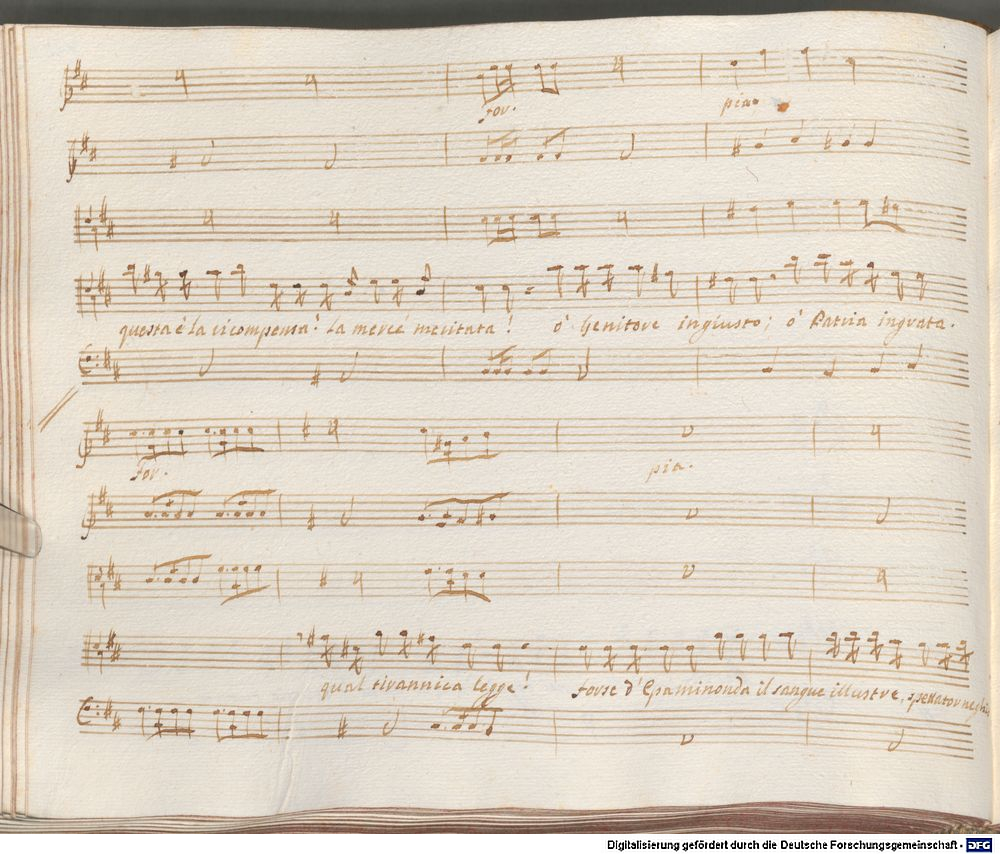 for. pia.
questa è la ricompensa! la mercé meritata! ó Genitore ingiusto; ó Patria ingrata.
for. pia.
qual tirannica legge! forse d'Epaminonda il sangue illustre, spettator
Digitalisierung gefördert durch die Deutsche Forschungsgemeinschaft - DFG